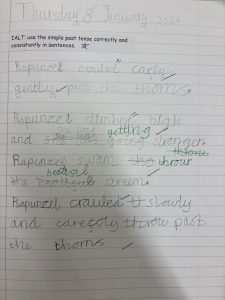 Thursday 8 January 2026
IALT: use the simple past tense correctly and
consistently in sentences.
Rapunzel crawled
gently past the thorns.
Rapunzel climbed high
getting
and going stronger.
Rapunzel swam throw
beatiful
the streem.
Rapunzel crawled slowly
and carefoly throw past
the thorns